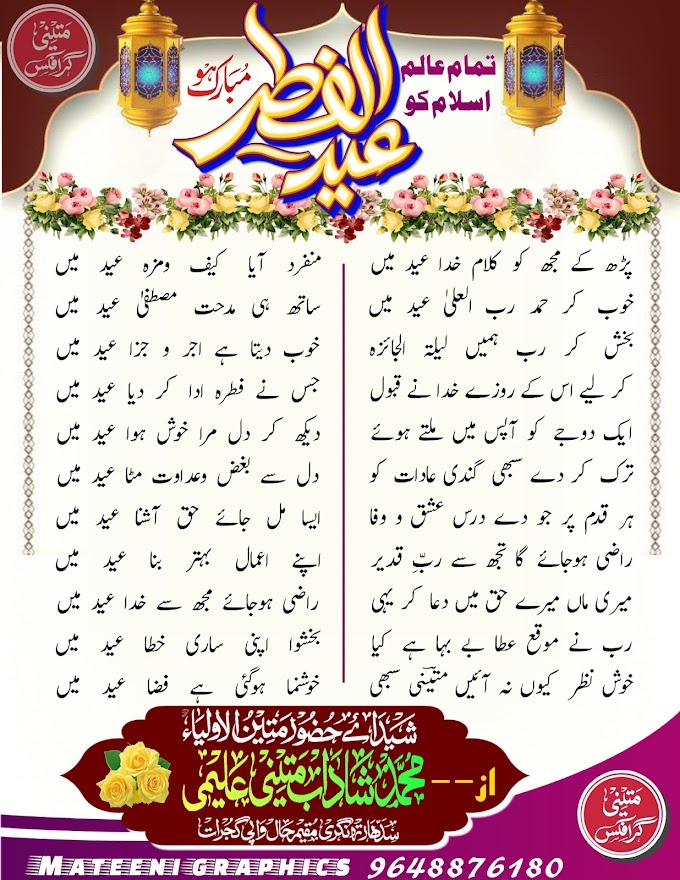 متینی گرافکس
تمام عالم
اسلام کو
عید الفطر
مبارک ہو
پڑھ کے مجھ کو کلام خدا عید میں منفرد آیا کیف ومزہ عید میں
خوب کر حمد رب العلیٰ عید میں ساتھ ہی مدحت مصطفیٰ عید میں
بخش کر رب ہمیں لیلۃ الجائزہ خوب دیتا ہے اجر و جزا عید میں
کر لیے اس کے روزے خدا نے قبول جس نے فطرہ ادا کر دیا عید میں
ایک دوجے کو آپس میں ملتے ہوئے دیکھ کر دل مرا خوش ہوا عید میں
ترک کر دے سبھی گندی عادات کو دل سے بغض وعداوت مٹا عید میں
ہر قدم پر جو دے درس عشق و وفا ایسا مل جائے حق آشنا عید میں
راضی ہوجائے گا تجھ سے ربِّ قدیر اپنے اعمال بہتر بنا عید میں
میری ماں میرے حق میں دعا کر یہی راضی ہوجائے مجھ سے خدا عید میں
رب نے موقع عطا بے بہا ہے کیا بخشوا اپنی ساری خطا عید میں
خوش نظر کیوں نہ آئیں متینؔی سبھی خوشنما ہوگئی ہے فضا عید میں
شیدائے حضور متین الاولیاء
از-- محمد شاداب متینی علیمی
سدھارتھ نگری مقیم حال واپی گجرات
متینی گرافکس
MATEENI GRAPHICS 9648876180